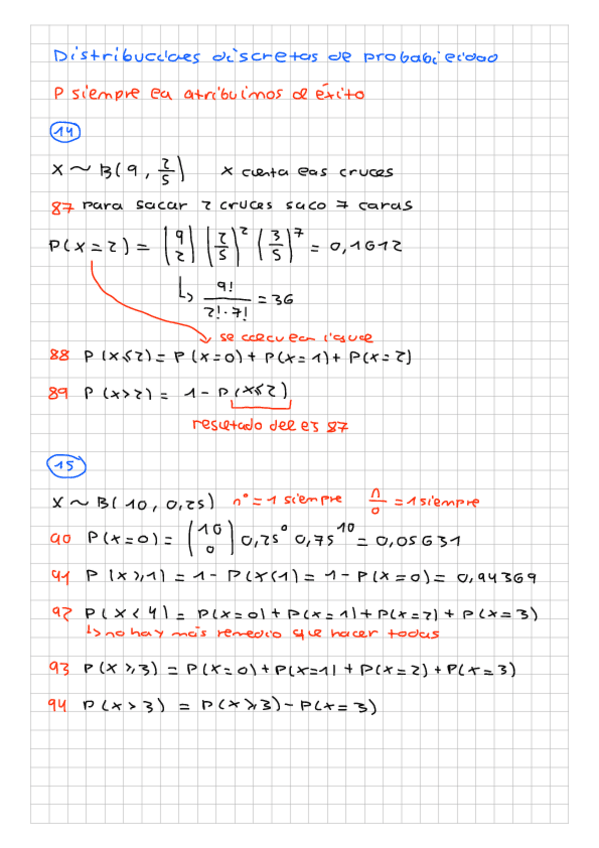 Distribuciones discretas de probabilidad
P siempre la atribuimos al éxito
14
X ~ B(9, 2/5) x cuenta las cruces
87 para sacar 2 cruces saco 7 caras
P(x=2) = (9 2) (2/5)^2 (3/5)^7 = 0,1612
↳ 9!/(2!·7!) = 36
se calculan igual
88 P(x≤2) = P(x=0) + P(x=1) + P(x=2)
89 P(x>2) = 1 - P(x≤2)
resultado del ej 87
15
X ~ B(10, 0,25) n° = 1 siempre n/0 = 1 siempre
90 P(x=0) = (10 0) 0,25^0 0,75^10 = 0,05631
91 P(x≥1) = 1 - P(x<1) = 1 - P(x=0) = 0,94369
92 P(x<4) = P(x=0) + P(x=1) + P(x=2) + P(x=3)
↳ no hay más remedio que hacer todas
93 P(x≥3) = P(x=0) + P(x=1) + P(x=2) + P(x=3)
94 P(x>3) = P(x≥3) - P(x=3)